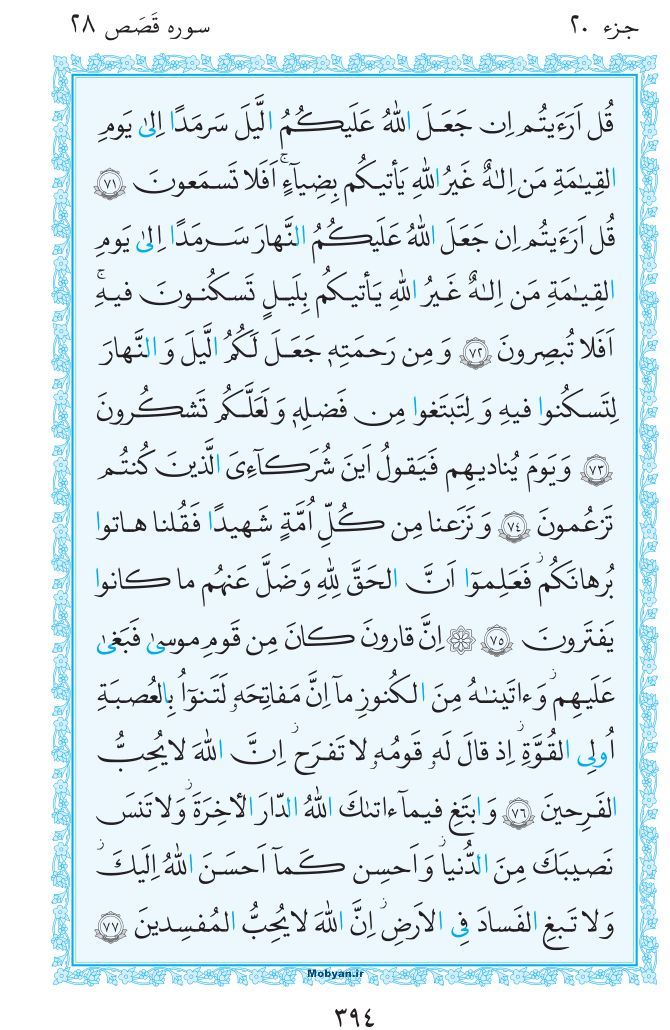 جزء ۲۰
سوره قَصَص ۲۸
قُل اَرَءَیتُم اِن جَعَلَ اللهُ عَلَیکُمُ الَّیلَ سَرمَدًا اِلیٰ یَومِ
القِیٰمَةِ مَن اِلٰهٌ غَیرُ اللهِ یَأتیکُم بِضِیآءٍ ۚ اَفَلا تَسمَعونَ ﴿۷۱﴾
قُل اَرَءَیتُم اِن جَعَلَ اللهُ عَلَیکُمُ النَّهارَ سَرمَدًا اِلیٰ یَومِ
القِیٰمَةِ مَن اِلٰهٌ غَیرُ اللهِ یَأتیکُم بِلَیلٍ تَسکُنونَ فیهِ ۚ
اَفَلا تُبصِرونَ ﴿۷۲﴾ وَ مِن رَحمَتِهٖ جَعَلَ لَکُمُ الَّیلَ وَ النَّهارَ
لِتَسکُنوا فیهِ وَ لِتَبتَغوا مِن فَضلِهٖ وَ لَعَلَّکُم تَشکُرونَ
﴿۷۳﴾ وَ یَومَ یُنادیهِم فَیَقولُ اَینَ شُرَکآءِیَ الَّذینَ کُنتُم
تَزعُمونَ ﴿۷۴﴾ وَ نَزَعنا مِن کُلِّ اُمَّةٍ شَهیدًا فَقُلنا هاتوا
بُرهانَکُم ۫ فَعَلِموٓا اَنَّ الحَقَّ لِلّٰهِ وَ ضَلَّ عَنهُم ما کانوا
یَفتَرونَ ﴿۷۵﴾ ۞ اِنَّ قارونَ کانَ مِن قَومِ موسیٰ فَبَغیٰ
عَلَیهِم ۫ وَ ءاتَینٰهُ مِنَ الکُنوزِ مآ اِنَّ مَفاتِحَهٗ لَتَنوٓاُ بِالعُصبَةِ
اُولِی القُوَّةِ ۫ اِذ قالَ لَهٗ قَومُهٗ لا تَفرَح ۫ اِنَّ اللهَ لا یُحِبُّ
الفَرِحینَ ﴿۷۶﴾ وَ ابتَغِ فیمآ ءاتىٰكَ اللهُ الدّارَ الأخِرَةَ ۫ وَ لا تَنسَ
نَصیبَكَ مِنَ الدُّنیا ۫ وَ اَحسِن کَمآ اَحسَنَ اللهُ اِلَیكَ ۫
وَ لا تَبغِ الفَسادَ فِی الاَرضِ ۫ اِنَّ اللهَ لا یُحِبُّ المُفسِدینَ ﴿۷۷﴾
Mobyan.ir
۳۹٤